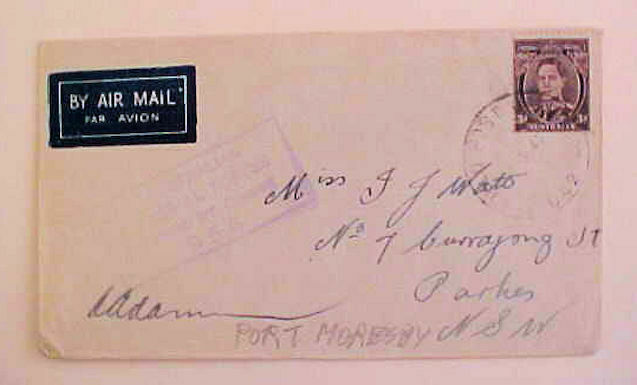 BY AIR MAIL
PAR AVION
3d
AUSTRALIA
Miss I J Watt
No 7 Currajong St
Parkes
N S W
AAdam
PORT MORESBY